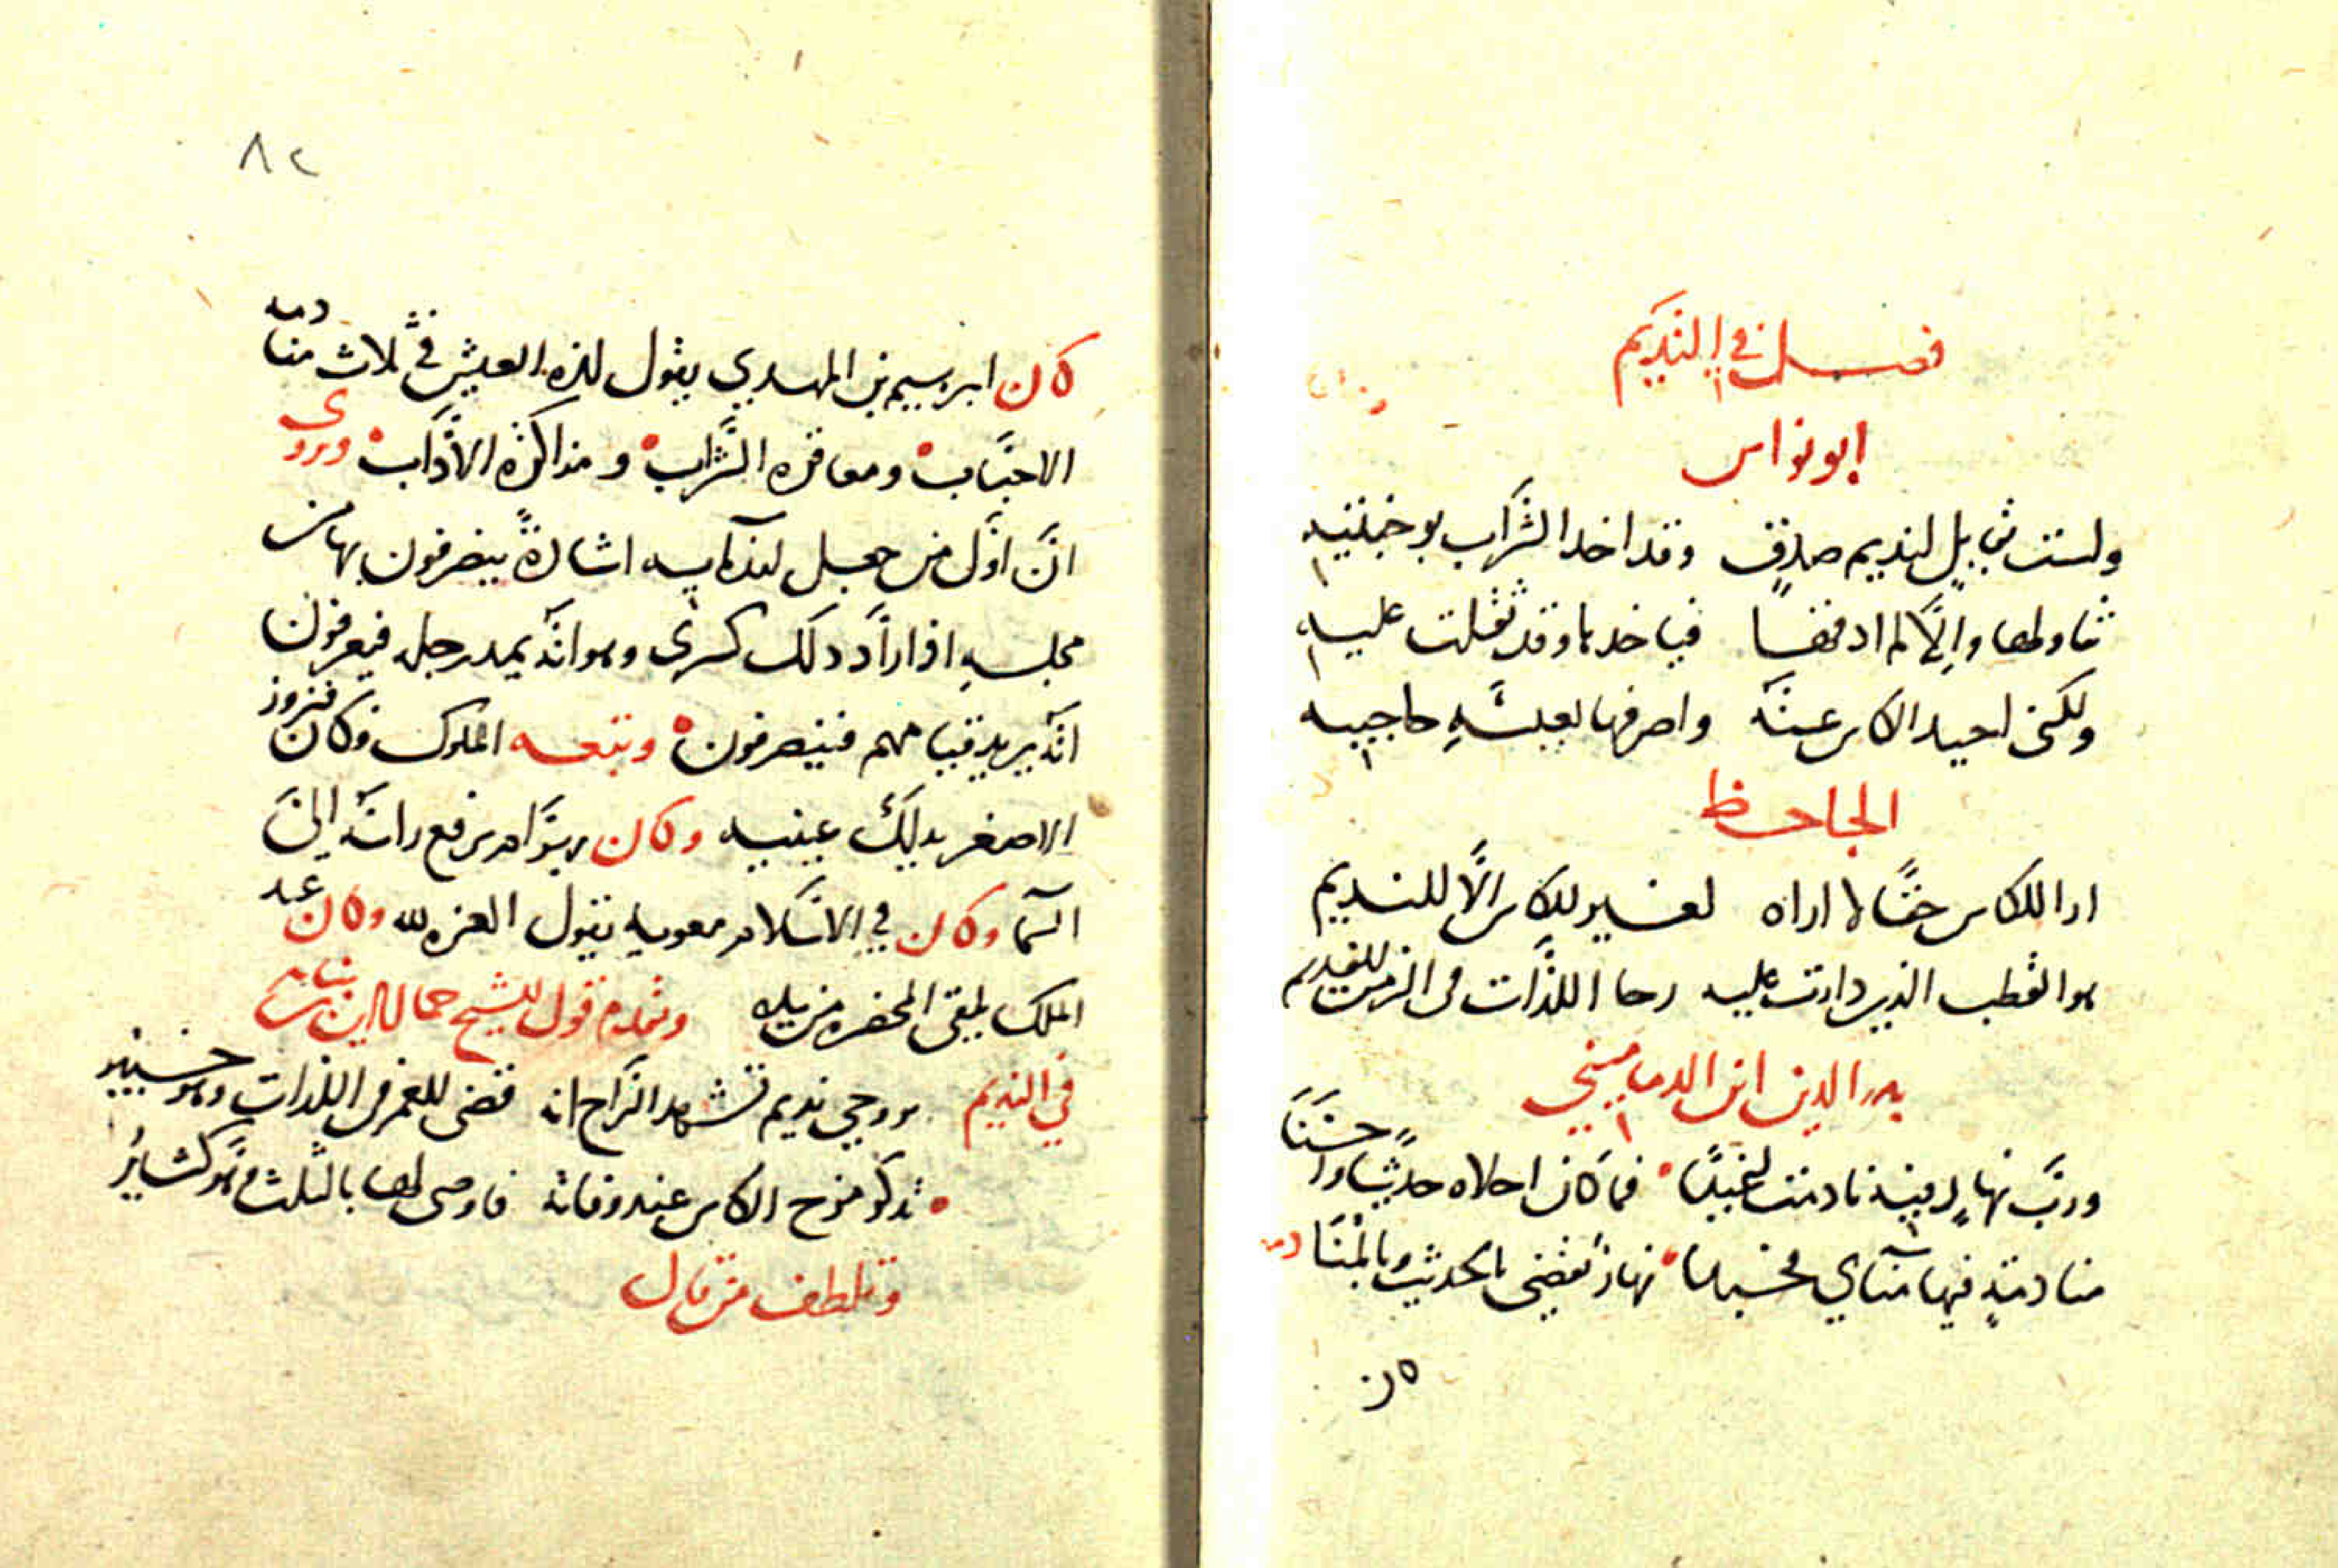 فصل في النديم
ابو نواس
ولست بقايل لنديم صدق وقد اخد الشراب بوجنتيه
تناولها والا لم ادقها فياخدها وقد ثقلت عليه
ولكني احيد الكاس عنه واصرفها بغمزة حاجبيه
الجاحظ
ارا للكاس حقا لا اراه لغير الكاس الا للنديم
هو القطب الذي دارت عليه رحا اللذات في الزمن القديم
بدر الدين ابن الدماميني
ورب نهار فيه نادمت اغيدا فما كان احلاه حديثا واحسنا
منادمة فيها مناي فحبدا نهار تقضى بالحديث وبالمنا
دمه
٨٢
كان ابرهيم بن المهدي يقول لذه العيش في ثلاث منادمه
الاحباب ومعاقره الشراب ومذاكره الاداب ويروى
ان اول من جعل لندمايه اشارة ينصرفون بها من
مجلسه اذا اراد دلك كسرى وهو انه يمد رجله فيعرفون
انه يريد قيامهم فينصرفون وتبعه الملوك فكان فيروز
الاصغر يدلك عينيه وكان بهرام يرفع راسه الى
السما وكان في الاسلام معويه يقول العزه لله وكان عبد
الملك يلقى المخصره من يده وتقدم قول الشيخ جمال الدين بن نباته
في النديم بروحي نديم تشهد الراح انه قضى العمر في اللذات وهو خبير
تدكر مزج الكاس عند وفاته فاوصى لها بالثلث وهو كثير
وتلطف من قال